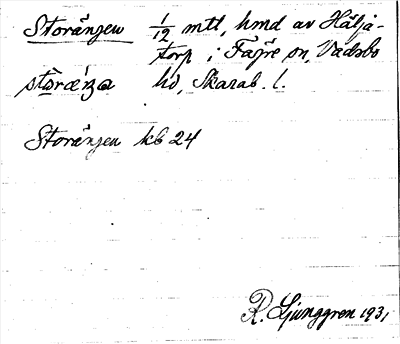 Storängen 1/12 mtl, hmd av Hälja-
torp i Färe sn, Vadsbo
hd, Skarab. l.
Storängen kb 24
R. Ljunggren 1931